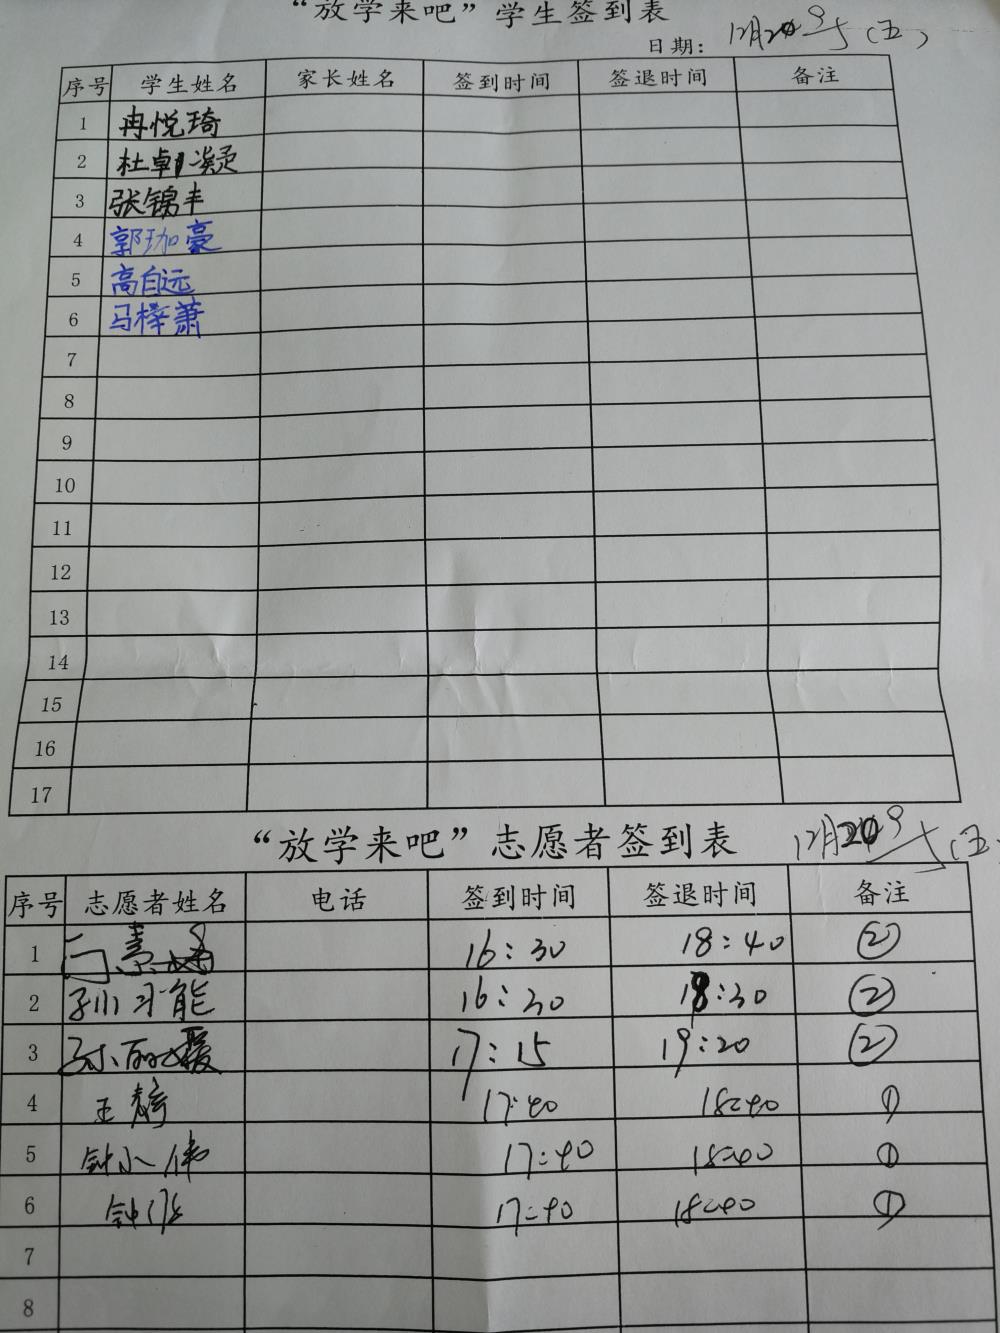 “放学来吧”学生签到表
日期： 12月 （五）
序号 学生姓名 家长姓名 签到时间 签退时间 备注
1 冉悦琦
2 杜卓凝
3 张锦丰
4 郭珈豪
5 高自远
6 马梓萧
7
8
9
10
11
12
13
14
15
16
17
“放学来吧”志愿者签到表 12月 （五）
序号 志愿者姓名 电话 签到时间 签退时间 备注
1 16：30 18：40 ②
2 16：30 18：30 ②
3 17：15 19：20 ②
4 17:40 18:40 ①
5 钟小伟 17:40 18:40 ①
6 17:40 18:40 ①
7
8